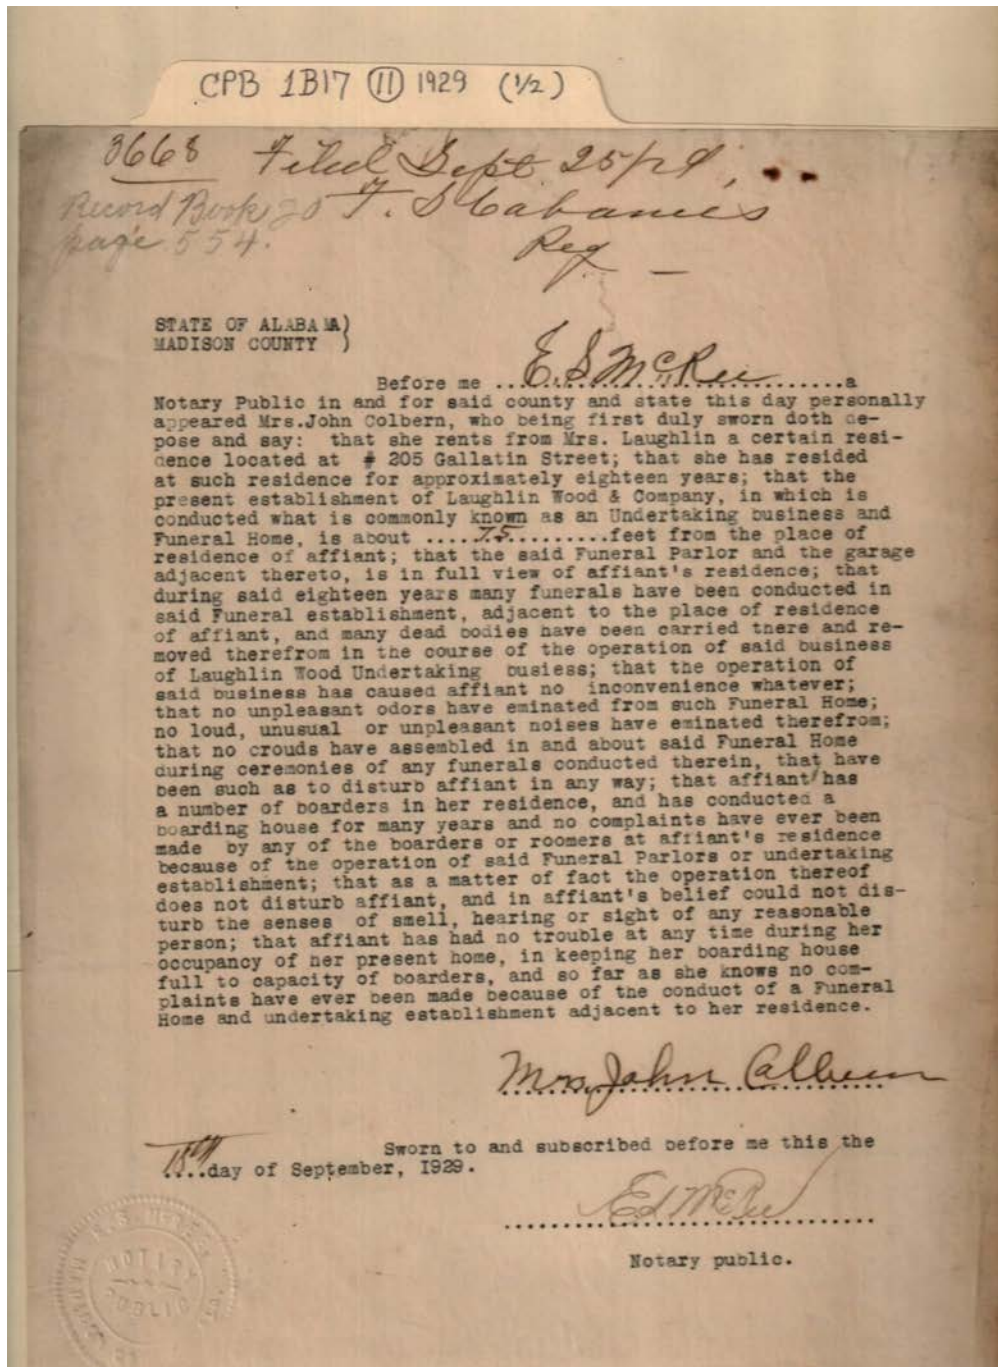 CPB 1B17 (11) 1929 (1/2)
3668 Filed Sept 25/29,
Record Book 20 F. S Cabaniss
page 554. Reg
STATE OF ALABAMA)
MADISON COUNTY )
Before me ...E. S McRee...........a
Notary Public in and for said county and state this day personally
appeared Mrs.John Colbern, who being first duly sworn doth de-
pose and say: that she rents from Mrs. Laughlin a certain resi-
dence located at # 205 Gallatin Street; that she has resided
at such residence for approximately eighteen years; that the
present establishment of Laughlin Wood & Company, in which is
conducted what is commonly known as an Undertaking business and
Funeral Home, is about ....75.........feet from the place of
residence of affiant; that the said Funeral Parlor and the garage
adjacent thereto, is in full view of affiant's residence; that
during said eighteen years many funerals have been conducted in
said Funeral establishment, adjacent to the place of residence
of affiant, and many dead bodies have been carried there and re-
moved therefrom in the course of the operation of said business
of Laughlin Wood Undertaking busiess; that the operation of
said business has caused affiant no inconvenience whatever;
that no unpleasant odors have eminated from such Funeral Home;
no loud, unusual or unpleasant noises have eminated therefrom;
that no crouds have assembled in and about said Funeral Home
during ceremonies of any funerals conducted therein, that have
been such as to disturb affiant in any way; that affiant has
a number of boarders in her residence, and has conducted a
boarding house for many years and no complaints have ever been
made by any of the boarders or roomers at affiant's residence
because of the operation of said Funeral Parlors or undertaking
establishment; that as a matter of fact the operation thereof
does not disturb affiant, and in affiant's belief could not dis-
turb the senses of smell, hearing or sight of any reasonable
person; that affiant has had no trouble at any time during her
occupancy of her present home, in keeping her boarding house
full to capacity of boarders, and so far as she knows no com-
plaints have ever been made because of the conduct of a Funeral
Home and undertaking establishment adjacent to her residence.
Mrs. John Colbern
Sworn to and subscribed before me this the
18th..day of September, 1929.
E S McRee
Notary public.
NOTARY
PUBLIC